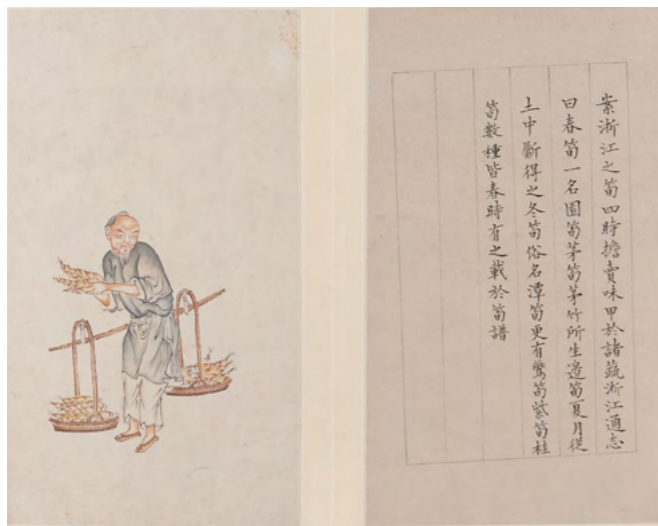 案浙江之筍四時擔賣味甲於諸蔬浙江通志
曰春筍一名園筍茅筍茅竹所生邉筍夏月從
土中斸得之冬筍俗名潭筍更有鶯筍紫筍桂
筍數種皆春時有之載於筍譜